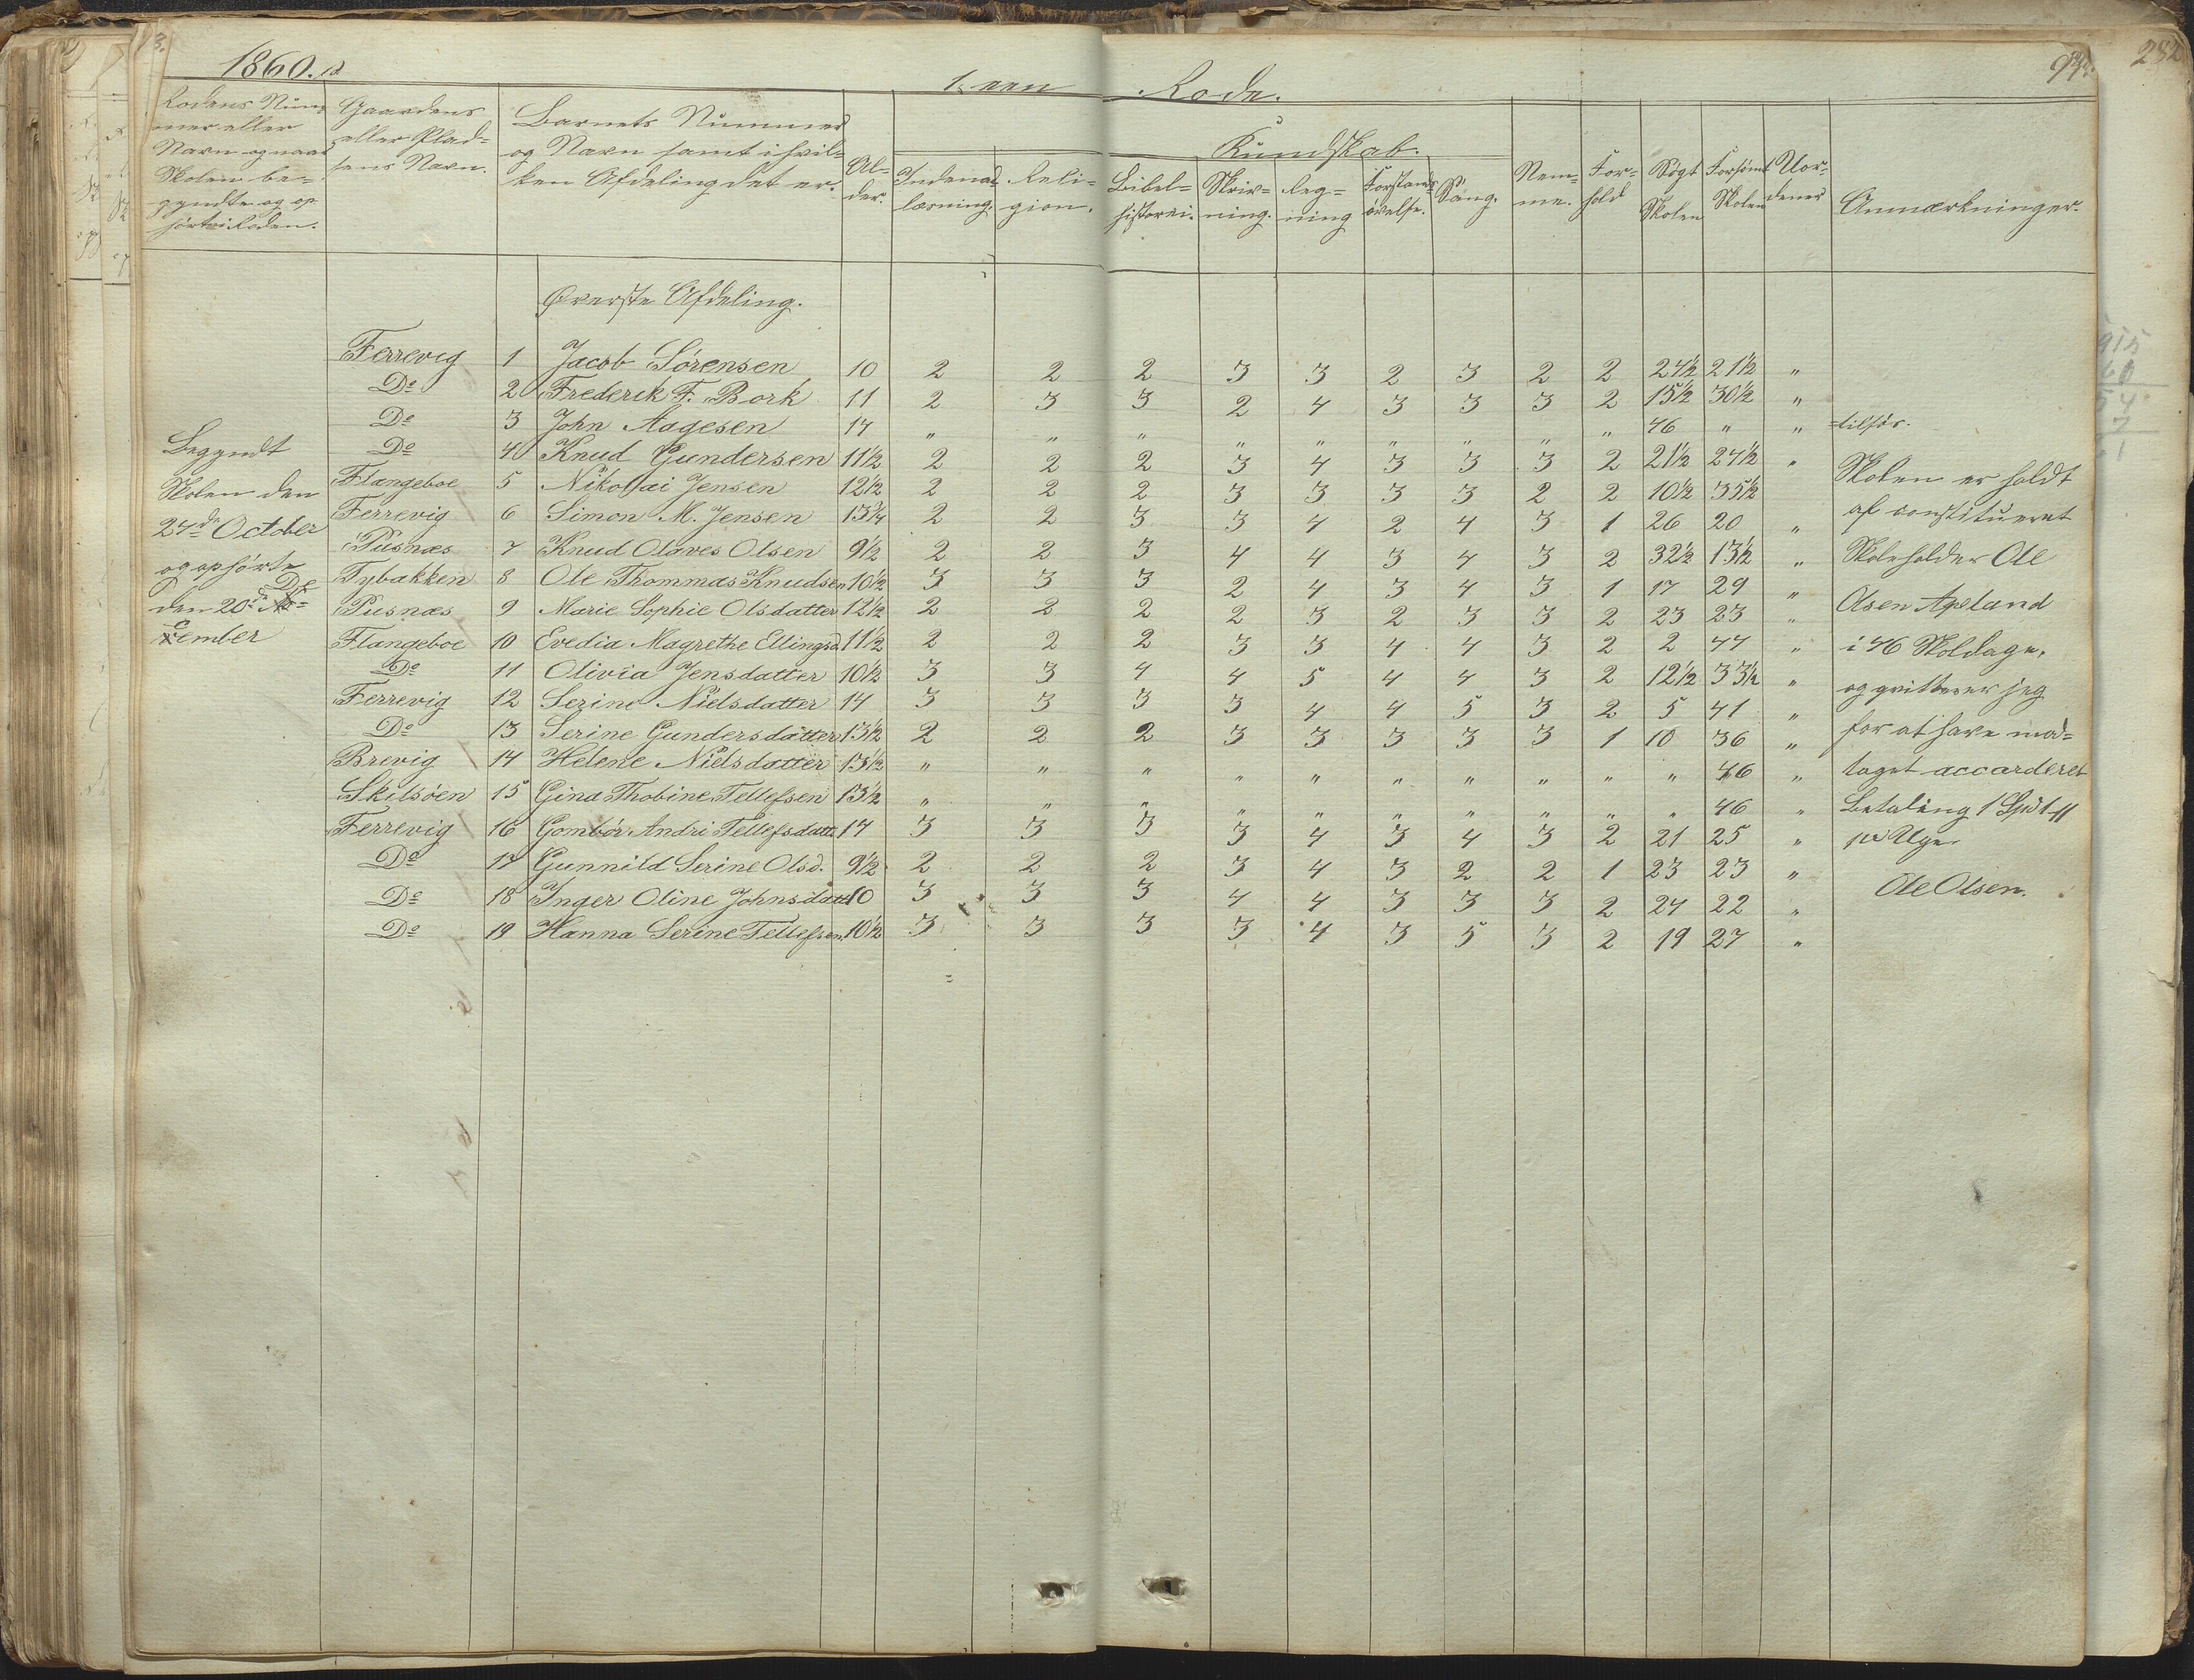 1860.
1. een Rode.
93.
282
Rodens Num-
mer eller
Navn og naar
Skolen be-
gyndte og op-
hørte i Roden.
Gaardens
eller Plad-
sens Navn.
Barnets Nummer
og Navn samt i hvil-
ken Afdeling det er.
Al-
der.
Kundskab.
Indenad
læsning.
Reli-
gion.
Bibel-
historei.
Skriv-
ning.
Reg-
ning
Forstands
øvelse.
Sang.
Nem-
me.
For-
hold
Søgt
Skolen
Forsømt
Skolen
Uor-
denes
Anmærkninger.
Øverste Afdeling.
Ferrevig 1 Jacob Sörensen 10 2 2 2 3 3 2 3 2 2 24½ 21½ "
Do 2 Frederik F. Bork 11 2 3 3 2 4 3 3 3 2 15½ 30½ "
Do 3 John Aagesen 14 " " " " " " " " " 46 " "
Do 4 Knud Gundersen 11½ 2 2 2 3 4 3 3 3 2 21½ 24½ "
Flangeboe 5 Nikolai Jensen 12½ 2 2 2 3 3 3 3 2 2 10½ 35½
Ferrevig 6 Simon M. Jensen 13¾ 2 2 3 3 4 2 4 3 1 26 20 "
Pusnæs 7 Knud Olaves Olsen 9½ 2 2 3 4 4 3 4 3 2 32½ 13½ "
Tybakken 8 Ole Thommas Knudsen 10½ 3 3 3 2 4 3 4 3 1 17 29 "
Pusnæs 9 Marie Sophie Olsdatter 12½ 2 2 2 2 3 2 3 3 2 23 23 "
Flangeboe 10 Evedia Magrethe Ellingsd 11½ 2 2 2 3 3 4 4 3 2 2 44 "
Do 11 Olivia Jensdatter 10½ 3 3 4 4 5 4 4 3 2 12½ 33½ "
Ferrevig 12 Serine Nielsdatter 14 3 3 3 3 4 4 5 3 2 5 41 "
Do 13 Serine Gundersdatter 13½ 2 2 2 3 3 3 3 3 1 10 36 "
Brevig 14 Helene Nielsdatter 13½ " " " " " " " " " " 46 "
Skilsöen 15 Gina Thobine Tellefsen 13½ " " " " " " " " " " 46 "
Ferrevig 16 Gombör Andri Tellefsdatt. 14 3 3 3 3 4 3 4 3 2 21 25 "
Do 17 Gunnild Serine Olsd. 9½ 2 2 2 3 4 3 2 2 1 23 23 "
Do 18 Inger Oline Johnsdatt. 10 3 3 3 4 4 3 3 3 2 24 22 "
Do 19 Hanna Serine Tellefsen 10½ 3 3 3 3 4 3 5 3 2 19 27 "
Begyndt
Skolen den
24de October
og ophørte
den 20de De
cember
tilsøs.
Skolen er holdt
af constitueret
Skoleholder Ole
Olsen Apeland
i 46 Skoldage,
og qvitterer jeg
for at have mod-
taget accorderet
Betaling 1 Spd
pr Uge.
Ole Olsen.